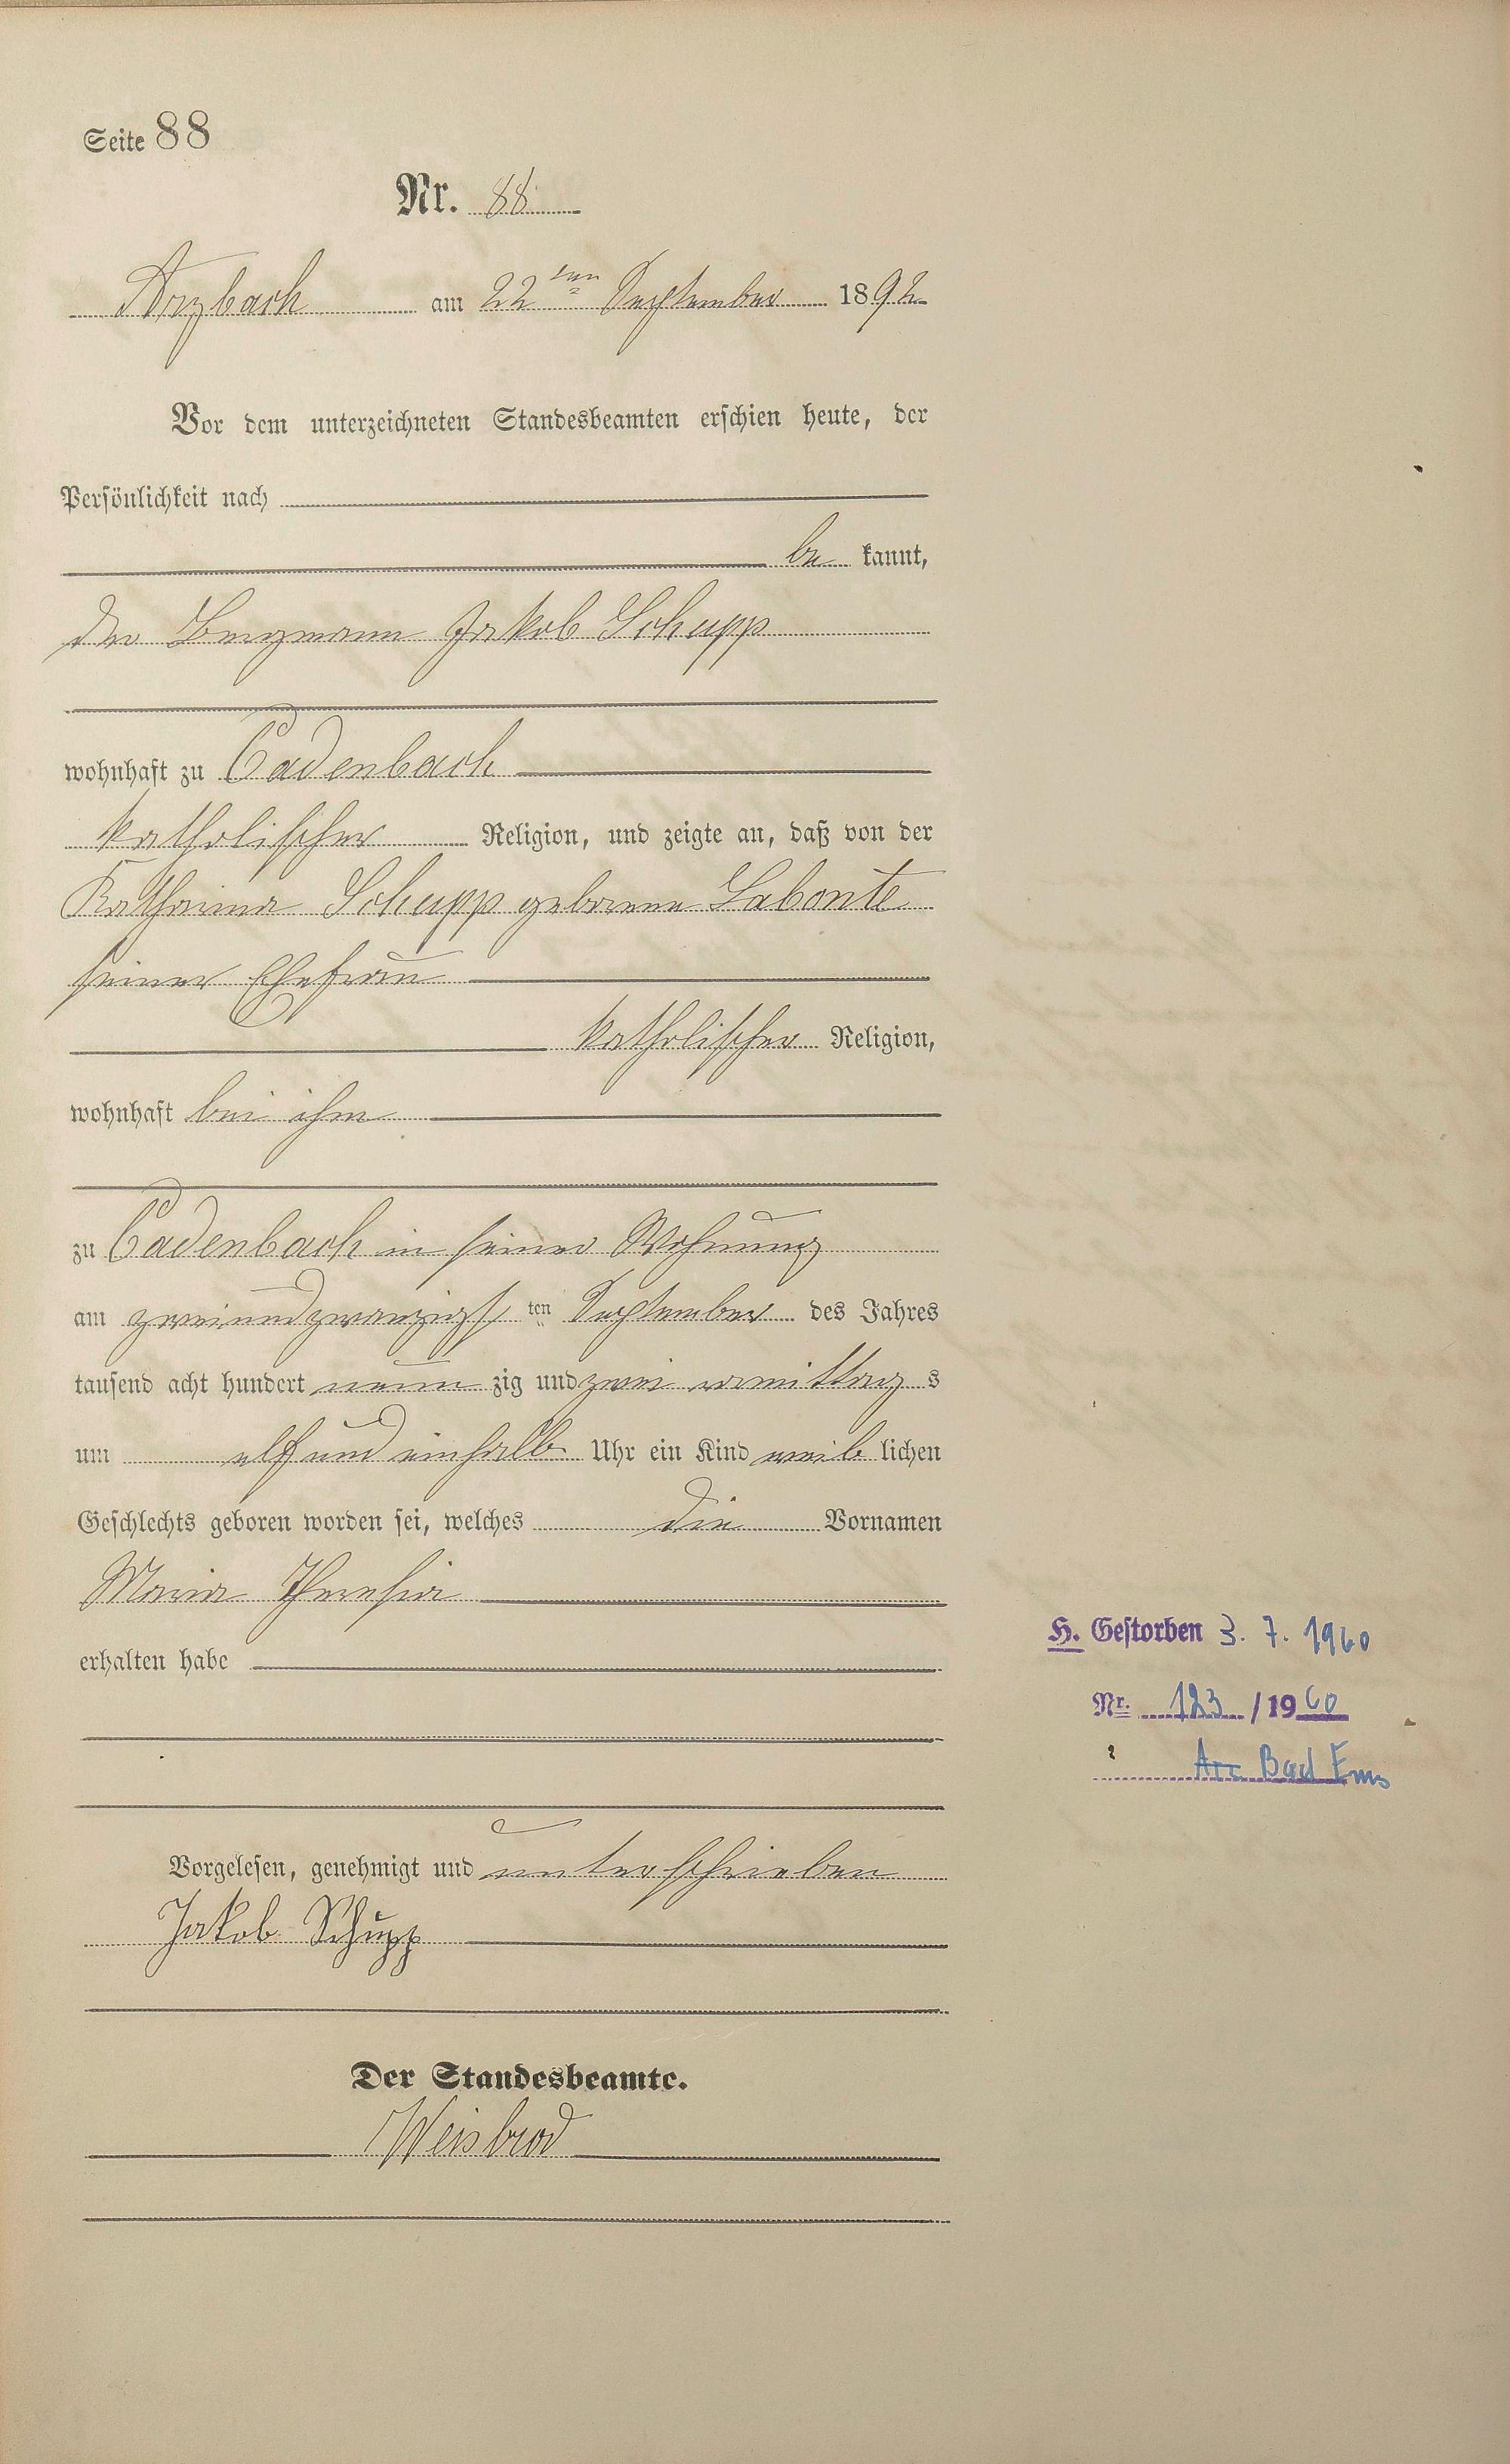 Seite 88
Nr. 88
Arzbach am 22ten September 1892
Vor dem unterzeichneten Standesbeamten erschien heute, der
Persönlichkeit nach
be kannt,
der Bergmann Jakob Schupp
wohnhaft zu Cadenbach
katholischer Religion, und zeigte an, daß von der
Katharina Schupp geborene Labonte
seiner Ehefrau
katholischer Religion,
wohnhaft bei ihm
zu Cadenbach in seiner Wohnung
am zweiundzwanzigsten September des Jahres
tausend acht hundert neun zig und zwei vormittags
um elf und einhalb Uhr ein Kind weib lichen
Geschlechts geboren worden sei, welches die Vornamen
Maria Theresia
erhalten habe
H. Gestorben 3. 7. 1960
Nr. 123/1960
Bad Ems
Vorgelesen, genehmigt und unterschrieben
Jakob Schupp
Der Standesbeamte.
Weisbrod